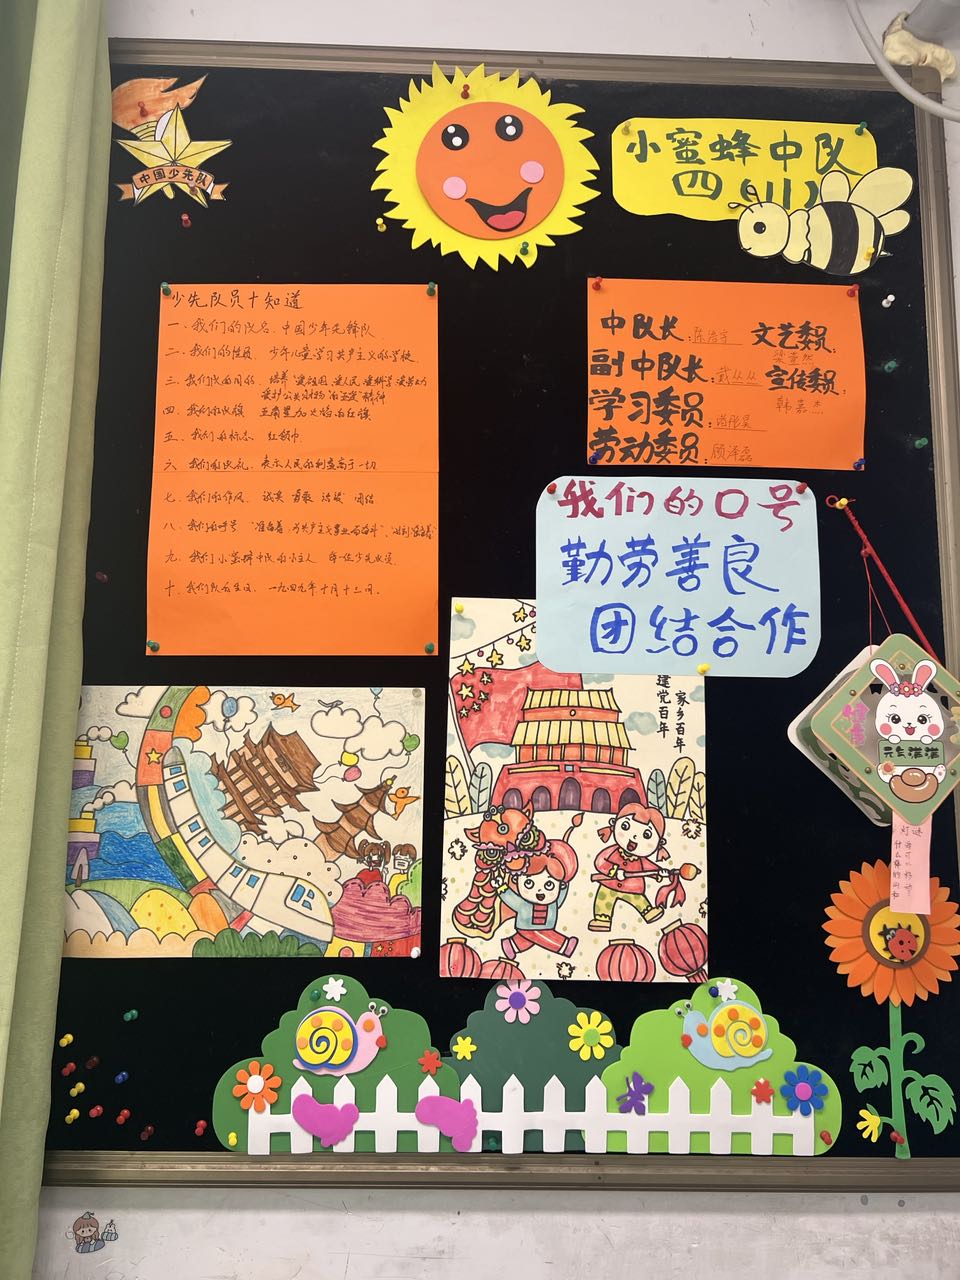 中国少先队
小蜜蜂中队
四(11)
少先队员十知道
一、我们的队名：中国少年先锋队
二、我们的性质：少年儿童学习共产主义的学校
三、我们队的目的：培养“爱祖国、爱人民、爱科学、爱劳动
爱护公共财物”的“五爱”精神
四、我们的队旗：五角星加火炬的红旗
五、我们的标志：红领巾
六、我们的队礼：表示人民的利益高于一切
七、我们的作风：诚实 勇敢 活泼 团结
八、我们的呼号：“准备着，为共产主义事业而奋斗”“时刻准备着”
九、我们小蜜蜂中队的小主人：每一位少先队员
十、我们队的生日：一九四九年十月十三日。
中队长：陈浩宇 文艺委员：
副中队长：戴丛丛 宣传委员：
韩嘉杰
学习委员：
劳动委员：顾泽磊
我们的口号
勤劳善良
团结合作
建党百年
家乡百年
元气满满
灯谜